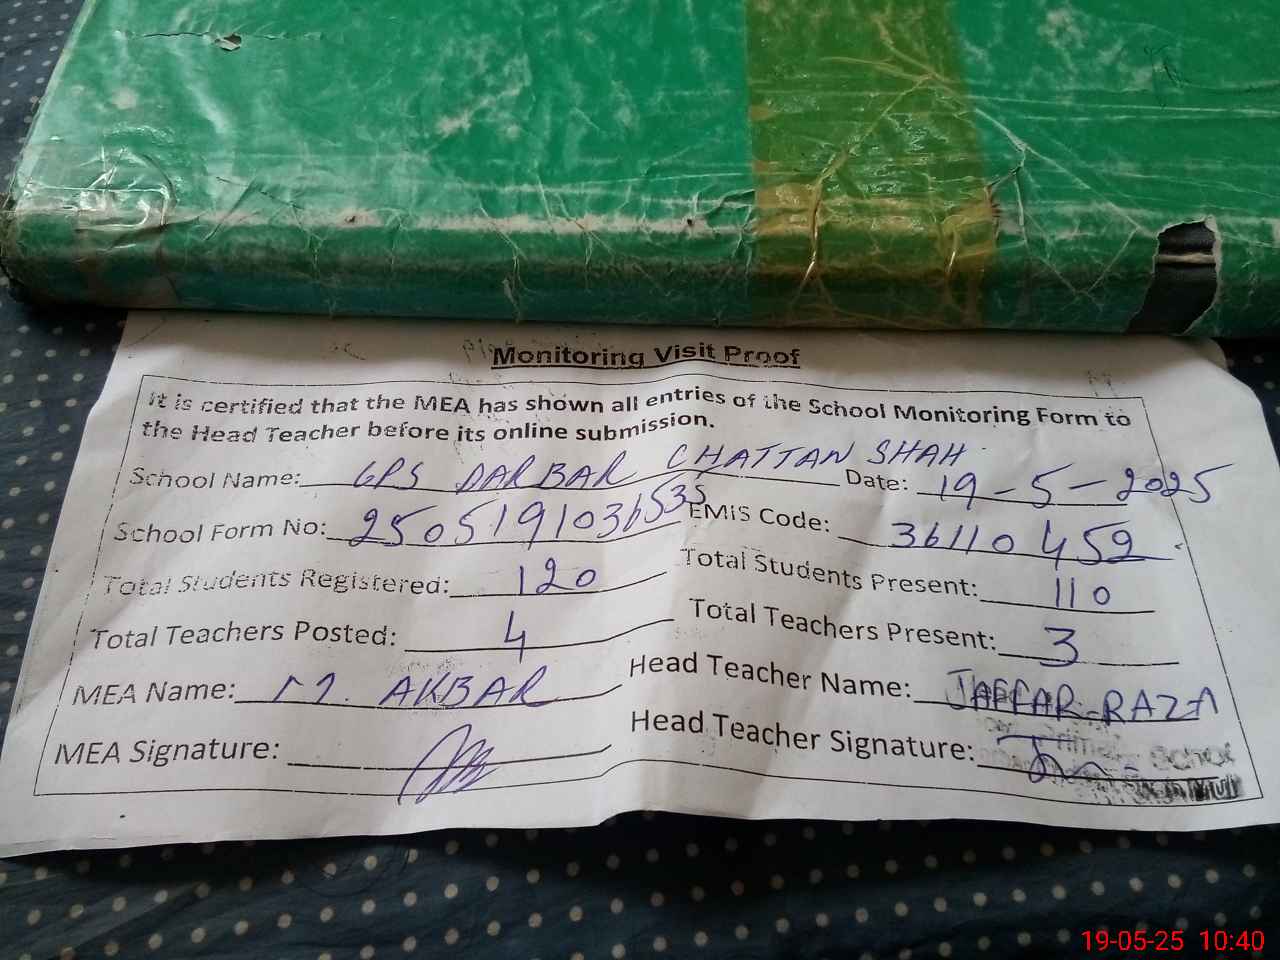 Monitoring Visit Proof
It is certified that the MEA has shown all entries of the School Monitoring Form to
the Head Teacher before its online submission.
School Name: GPS DARBAR CHATTAN SHAH Date: 19-5-2025
School Form No: 2505191036535 EMIS Code: 36110452
Total Students Registered: 120 Total Students Present: 110
Total Teachers Posted: 4 Total Teachers Present: 3
MEA Name: M. AKBAR Head Teacher Name: JAFFAR RAZA
MEA Signature: Head Teacher Signature:
Primary School
19-05-25 10:40